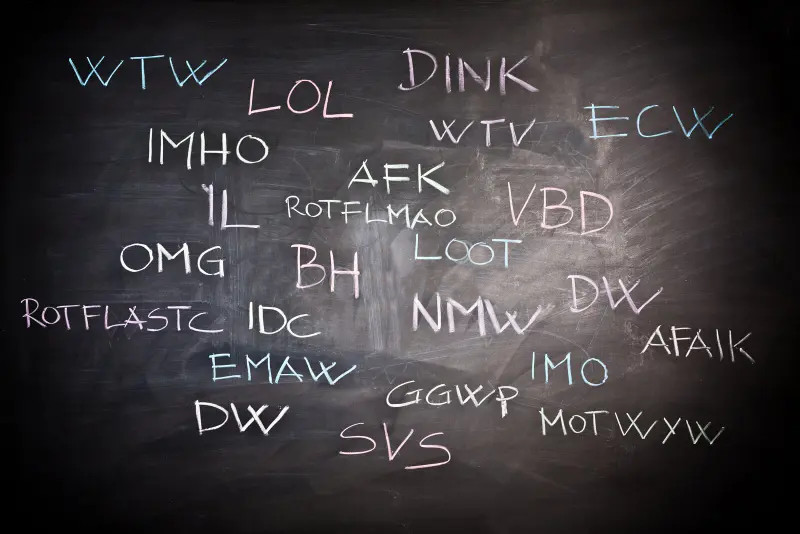 WTW
DINK
LOL
ECW
WTV
IMHO
AFK
IL
ROTFLMAO
VBD
LOOT
OMG
BH
DW
ROTFLASTC
IDC
NMW
AFAIK
EMAW
IMO
GGWP
DW
MOTWYW
SVS